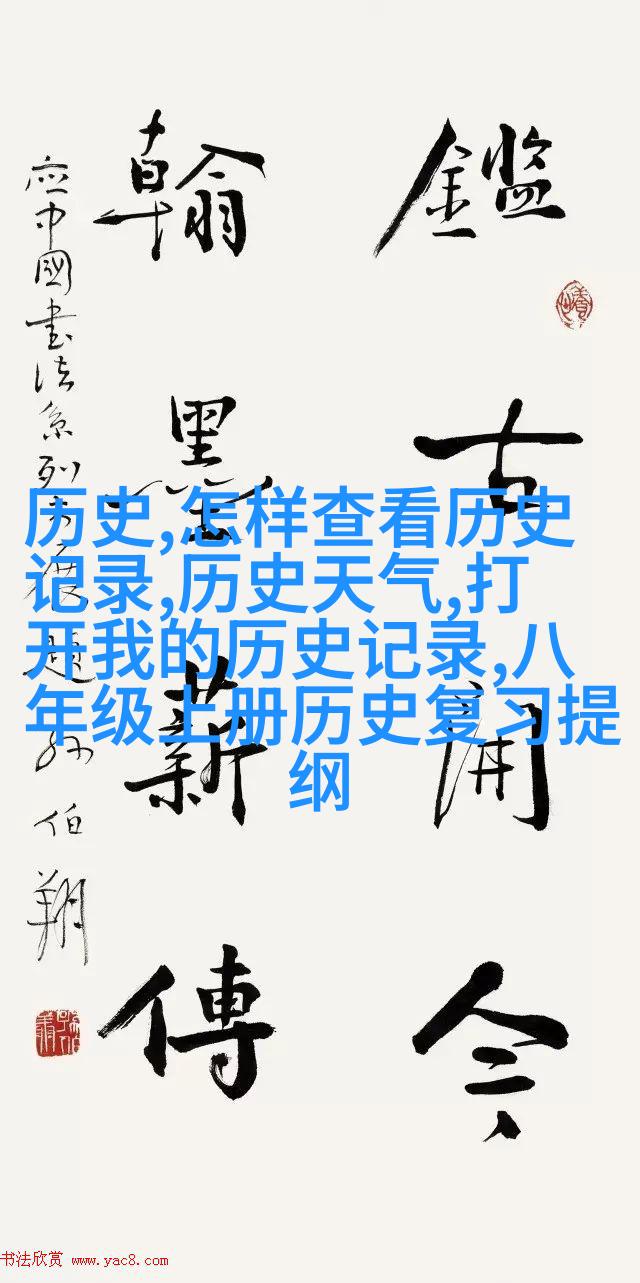 鑑古開今
翰墨薪傳
应中國書法系列大展題 孙伯翔
历史,怎样查看历史
记录,历史天气,打
开我的历史记录,八
年级上册历史复习提
纲
书法欣赏 www.yac8.com